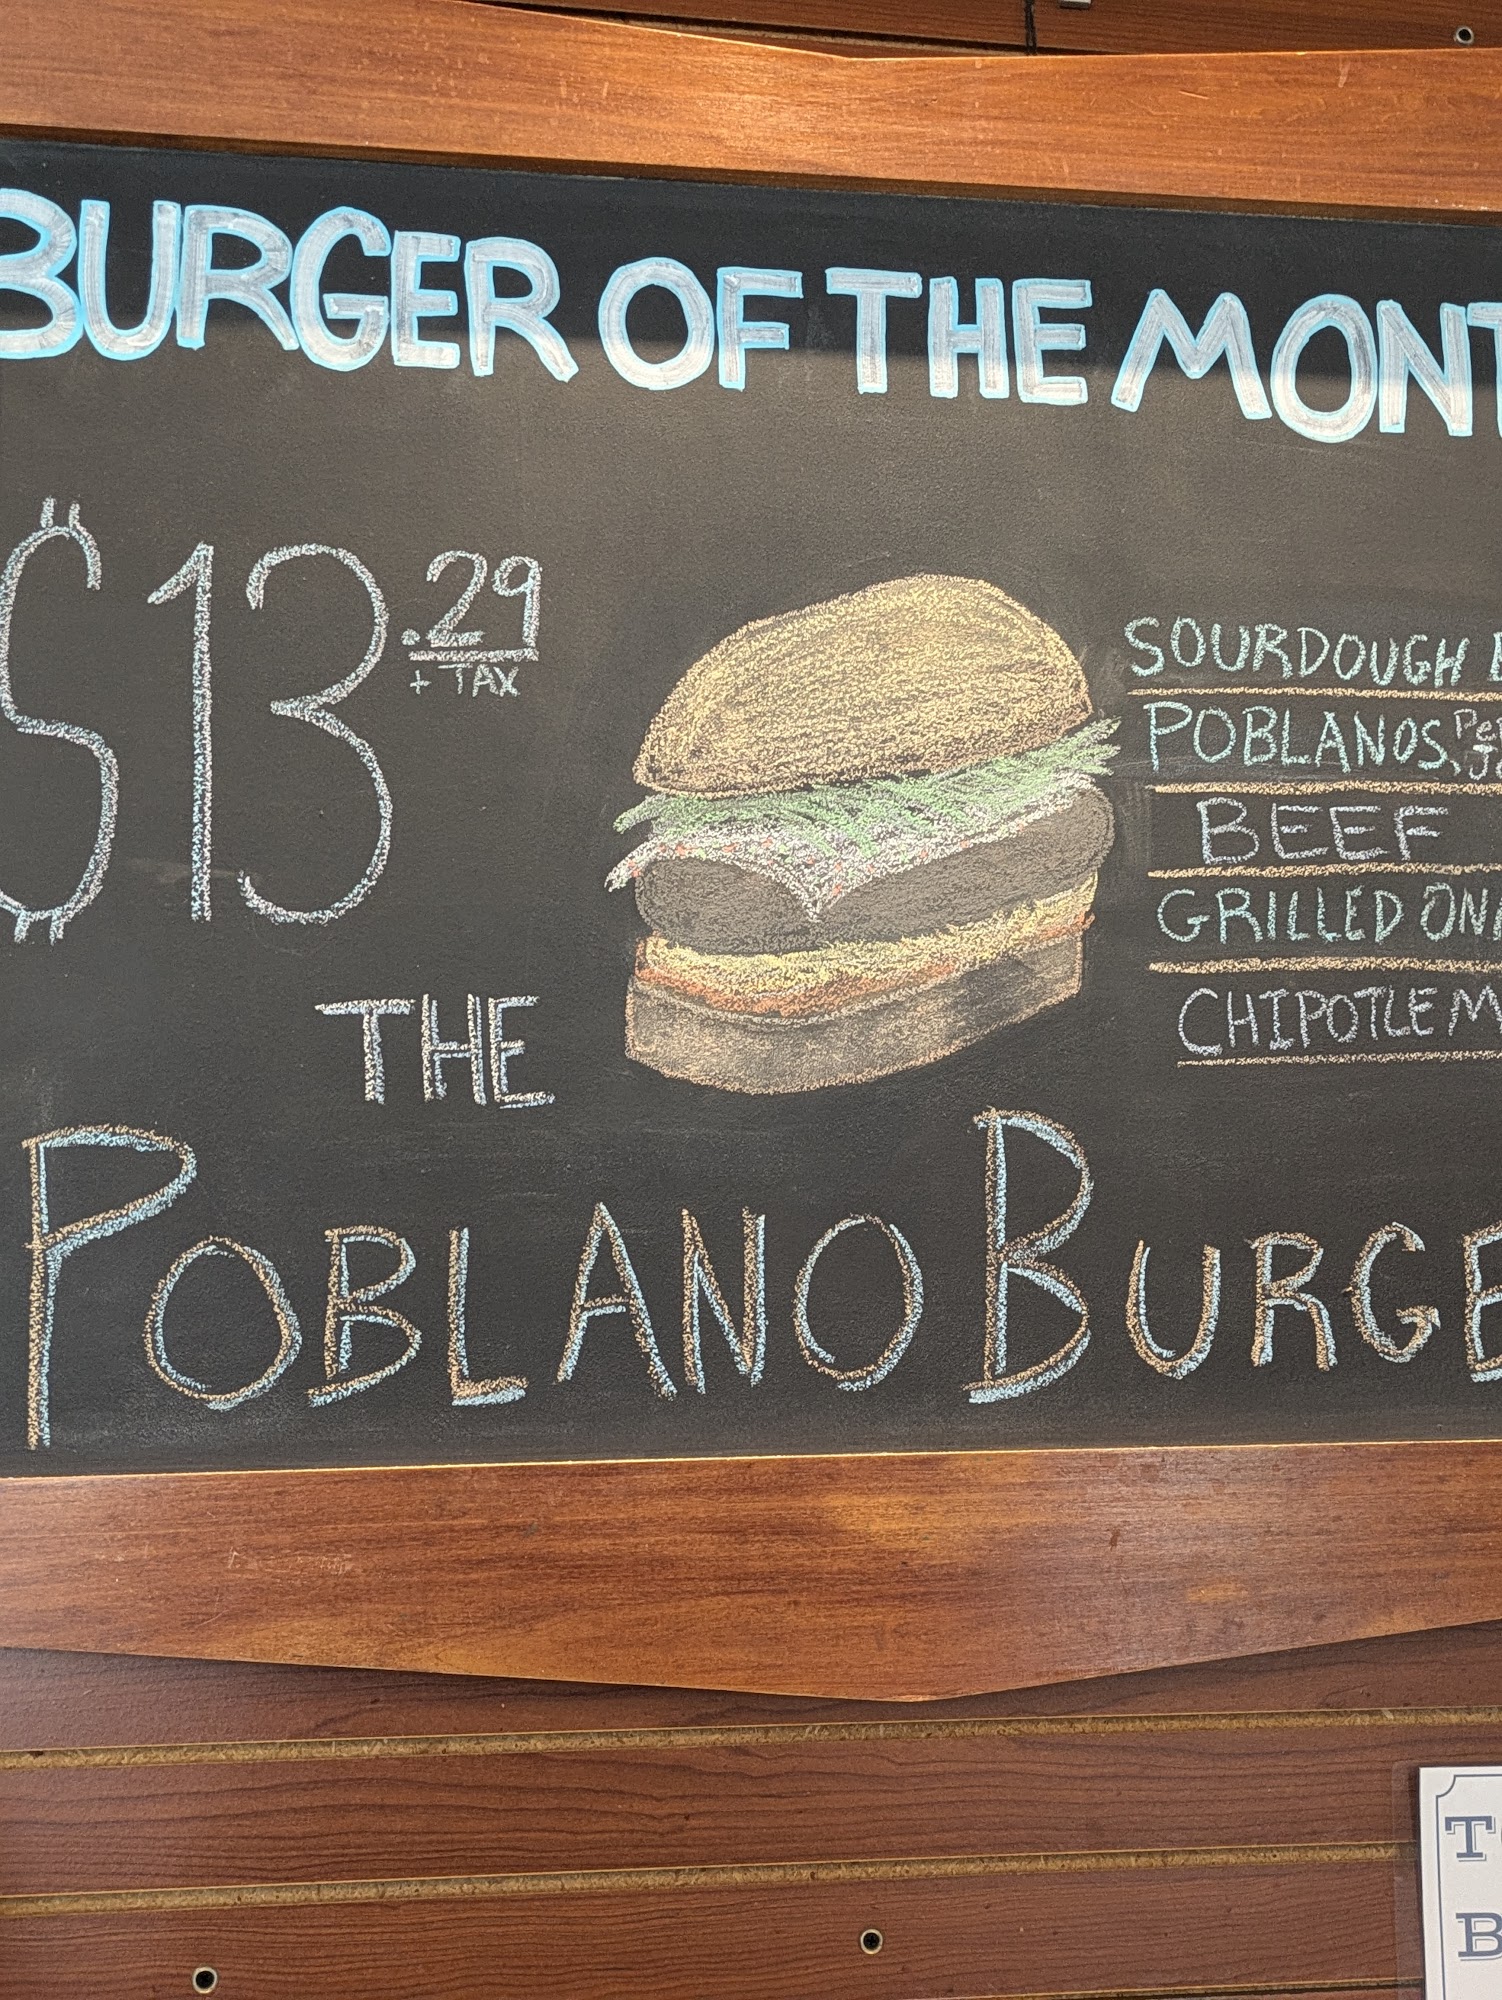 BURGER OF THE MONT
$13.29
+ TAX
SOURDOUGH
POBLANOS,
BEEF
GRILLED
CHIPOTLE
THE
POBLANO BURGE